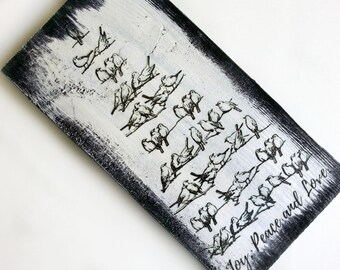 Joy, Peace and Love